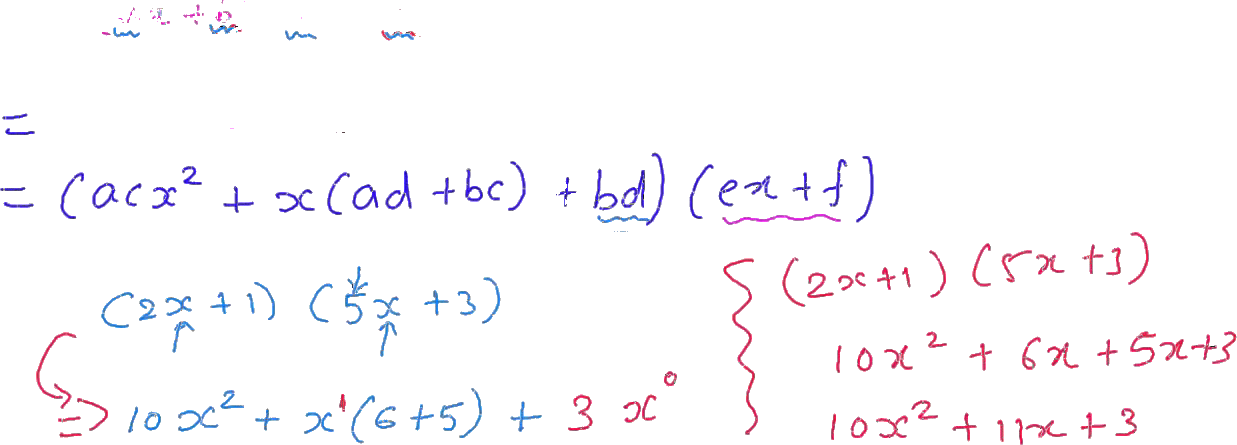 =
= (acx² + x(ad + bc) + bd) (ex + f)
(2x + 1) (5x + 3)
=> 10x² + x¹(6+5) + 3x⁰
(2x+1) (5x+3)
10x² + 6x + 5x+3
10x² + 11x + 3